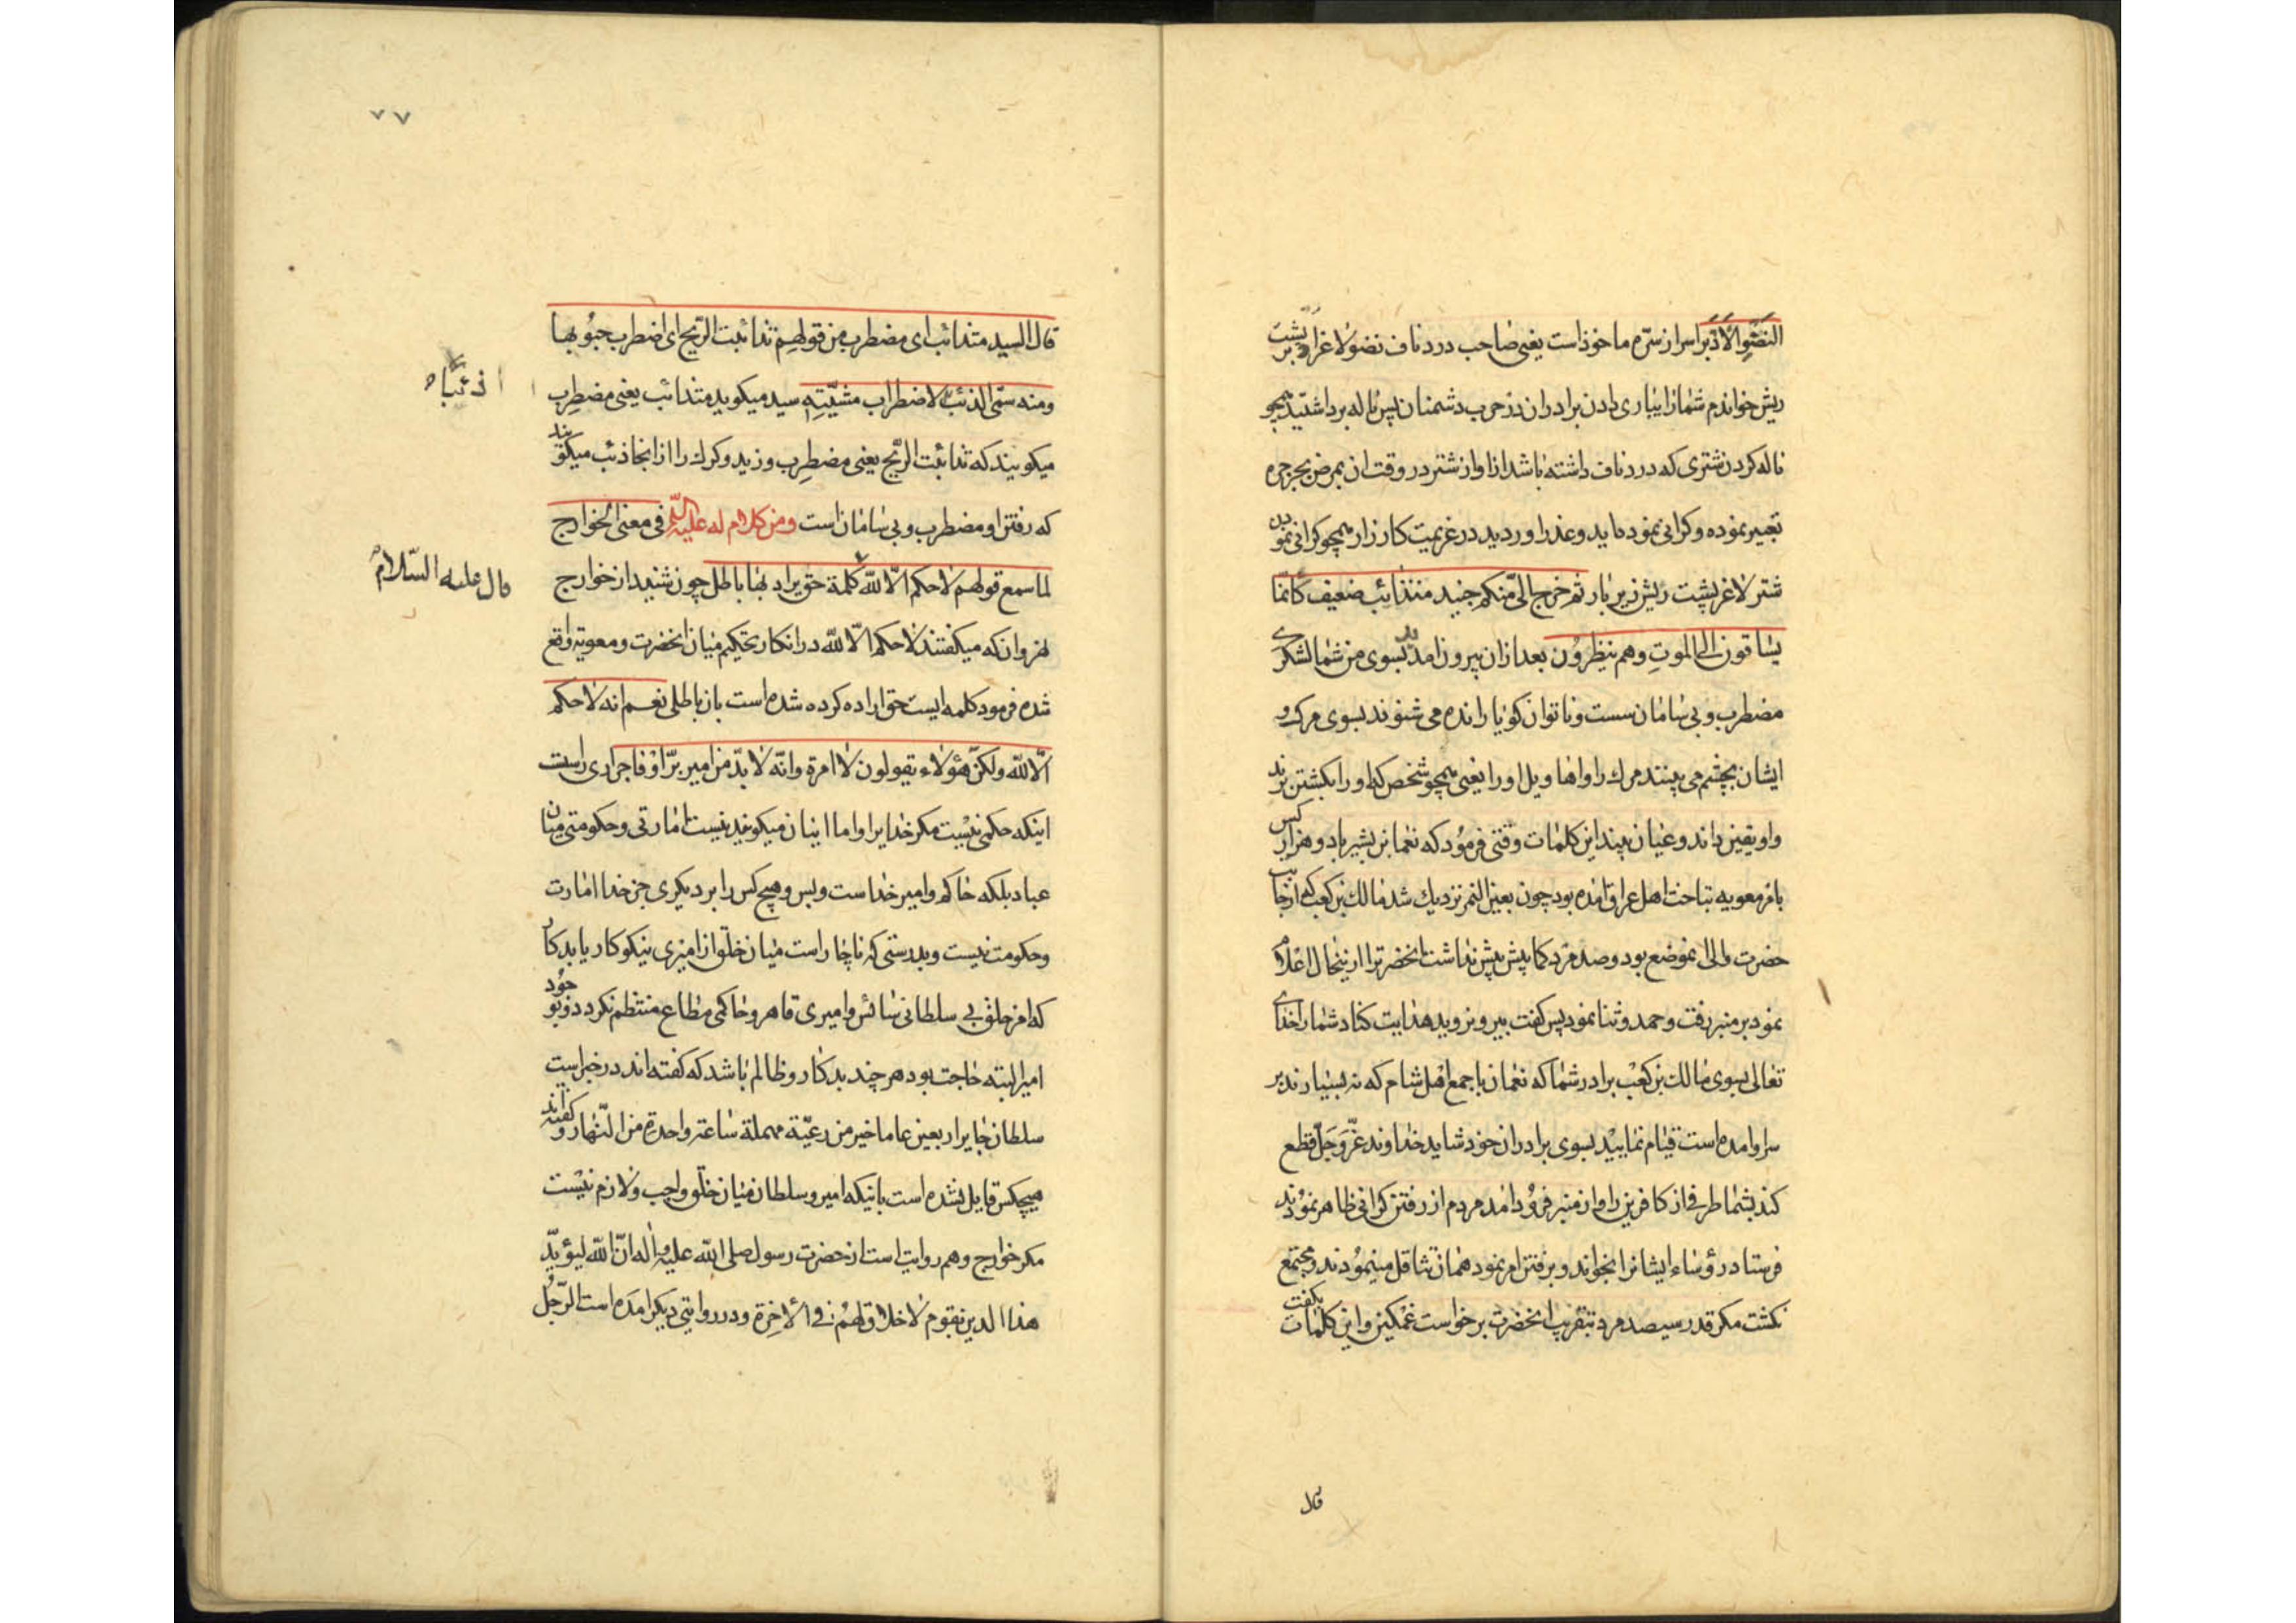 النضو الادبر اسر از سره ماخوذ است یعنی صاحب درد ناف نضو لاغر ادبر پشت
ریش خواندم شما را بیاری دادن برادران در حرب دشمنان پس ناله برداشتید همچو
ناله کردن شتری که درد ناف داشته باشد از اواز شتر در وقت ان مرض بجرجره
تعبیر نموده و کرانی نموده اید و عذر اوردید در عزیمت کارزار همچو کرانی نمودن
شتر لاغر پشت ریش زیر بار ثم خرج الیّ منکم جنید متذائب ضعیف کانما
یساقون الی الموت وهم ینظرون بعد از ان بیرون امد بسوی من از شما لشکری
مضطرب و بی سامان سست و ناتوان کویا رانده می شوند بسوی مرک و
ایشان بچشم می بینند مرك را و اهاویل او را یعنی همچو شخص که او را بکشتن برند
و او یقین داند و عیان بیند این کلمات وقتی فرمود که نعمان بن بشیر با دو هزار کس
بامر معویه بتاخت اهل عراق امده بود چون بعین التمر نزدیك شد مالك بن کعب که از جانب
حضرت والی انموضع بود و صد مرد کما بیش پیش نداشت انحضرت را از ینحال اعلام
نمود بر منبر رفت و حمد و ثنا نمود پس کفت بیرون روید هدایت کناد شما را خدای
تعالی بسوی مالك بن کعب برادر شما که نعمان با جمع اهل شام که نه بسیارند بر
سر او امده است قیام نمایید بسوی برادران خود شاید خداوند عزّ وجلّ قطع
کند بشما طرفی از کافرین را و از منبر فرود امد مردم از رفتن کرانی ظاهر نمودند
فرستاد رؤساء ایشانرا بخواند و برفتن امر نمود همان تثاقل مینمودند و مجتمع
نکشت مکر قدر سیصد مرد بتقریب انحضرت برخواست غمکین و این کلمات بکفت
قال
۷۷
قال السید متذائب ای مضطرب من قولهم تذائبت الریح ای اضطرب هبوبها
ومنه سمّی الذئب لاضطراب مشیّته سید میکوید متذائب یعنی مضطرب
ذئبا
میکویند که تذائبت الریح یعنی مضطرب وزید و کرك را از انجا ذئب میکویند
که رفتن او مضطرب و بی سامان است ومن کلام له علیه السلام فی معنی الخوارج
لما سمع قولهم لا حکم الّا لله کلمة حق یراد بها باطل چون شنید از خوارج
قال علیه السّلام
نهروان که میکفتند لا حکم الّا لله در انکار تحکیم میان انحضرت و معویه واقع
شده فرمود کلمه ایست حق اراده کرده شده است بان باطلی نعم انه لا حکم
الّا لله ولکنّ هؤلاء یقولون لا امرة وانّه لا بدّ من امیر برّ او فاجر اری راست
اینکه حکمی نیست مکر خدایرا و اما اینان میکویند نیست امارتی و حکومتی میان
عباد بلکه حاکم و امیر خداست و بس و هیچ کس را بر دیکری جز خدا امارت
و حکومت نیست و بدرستی که ناچار است میان خلق از امیری نیکوکار یا بدکار
که امر خلق بی سلطانی سائس و امیری قاهر و حاکمی مطاع منتظم نکردد و بوجود
امیر البته حاجت بود هر چند بدکار و ظالم باشد که کفته اند در خبر است
سلطان جایر اربعین عاما خیر من رعیّة مهملة ساعة واحدة من النّهار و کفته اند
هیچکس قایل نشده است باینکه امیر و سلطان میان خلق واجب و لازم نیست
مکر خوارج و هم روایت است از حضرت رسول صلی الله علیه و اله انّ الله لیؤیّد
هذا الدین بقوم لا خلاق لهم فی الاخرة و در روایتی دیکر امده است الرّجل